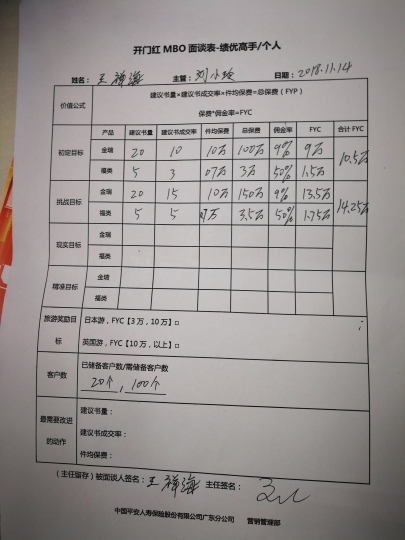 开门红 MBO 面谈表-绩优高手/个人
姓名: 王祥海 主管: 刘小玲 日期: 2018.11.14
价值公式 建议书量×建议书成交率×件均保费=总保费(FYP)
保费*佣金率=FYC
产品 建议书量 建议书成交率 件均保费 总保费 佣金率 FYC 合计 FYC
初定目标 金瑞 20 10 10万 100万 9% 9万 10.5万
福类 5 3 0.7万 3万 50% 1.5万
挑战目标 金瑞 20 15 10万 150万 9% 13.5万 14.25万
福类 5 5 0.7万 3.5万 50% 1.75万
现实目标 金瑞
福类
精准目标 金瑞
福类
旅游奖励目标 日本游,FYC【3 万,10 万】□
英国游,FYC【10 万,以上】□
客户数 已储备客户数/需储备客户数
20个,100个
最需要改进的动作 建议书量:
建议书成交率:
件均保费:
(主任留存)被面谈人签名: 王祥海 主任签名:
中国平安人寿保险股份有限公司广东分公司 营销管理部